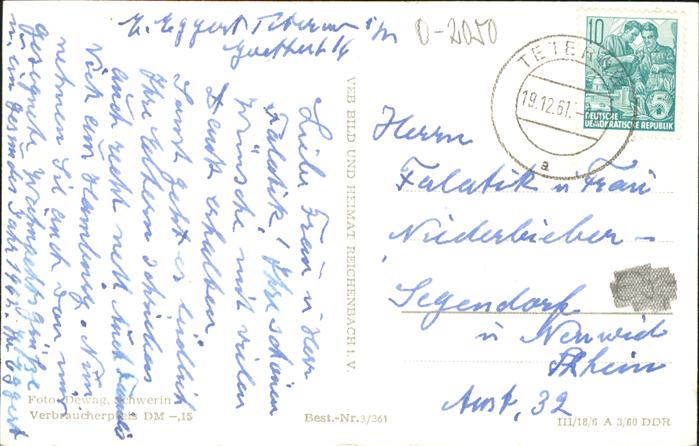 E. Eggert Teterow i/m
Goethestr.
O-2050
10
TETEROW
19.12.61.
a
DEUTSCHE
DEMOKRATISCHE REPUBLIK
Liebe Frau u Herr
Falatik! Ihre schönen
Wünsche mit vielen
Dank erhalten
Sonst geht es leidlich
Ihre Eltern schrieben
auch recht nett. Auch
Vick aus Hamburg. Nun
nehmen Sie auch von mir
gesegnete Weihnachtsgrüße
u. ein gesundes Jahr 1962. Ihr Eggert
VEB BILD UND HEIMAT REICHENBACH i. V.
Herrn
Falatik u Frau
Niederbieber -
Segendorf
u Neuwied
Rhein
Aust, 32
Foto: Dewag, Schwerin
Verbraucherpreis DM -,15
Best.-Nr.3/361
III/18/6 A 3/60 DDR